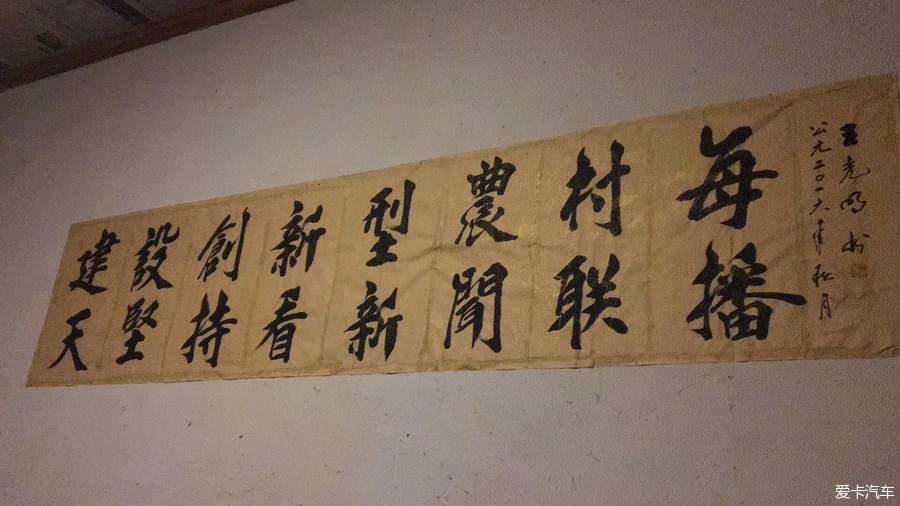 建設創新型農村每
天堅持看新聞联播
公元二〇一六年秋月
王克明书
爱卡汽车